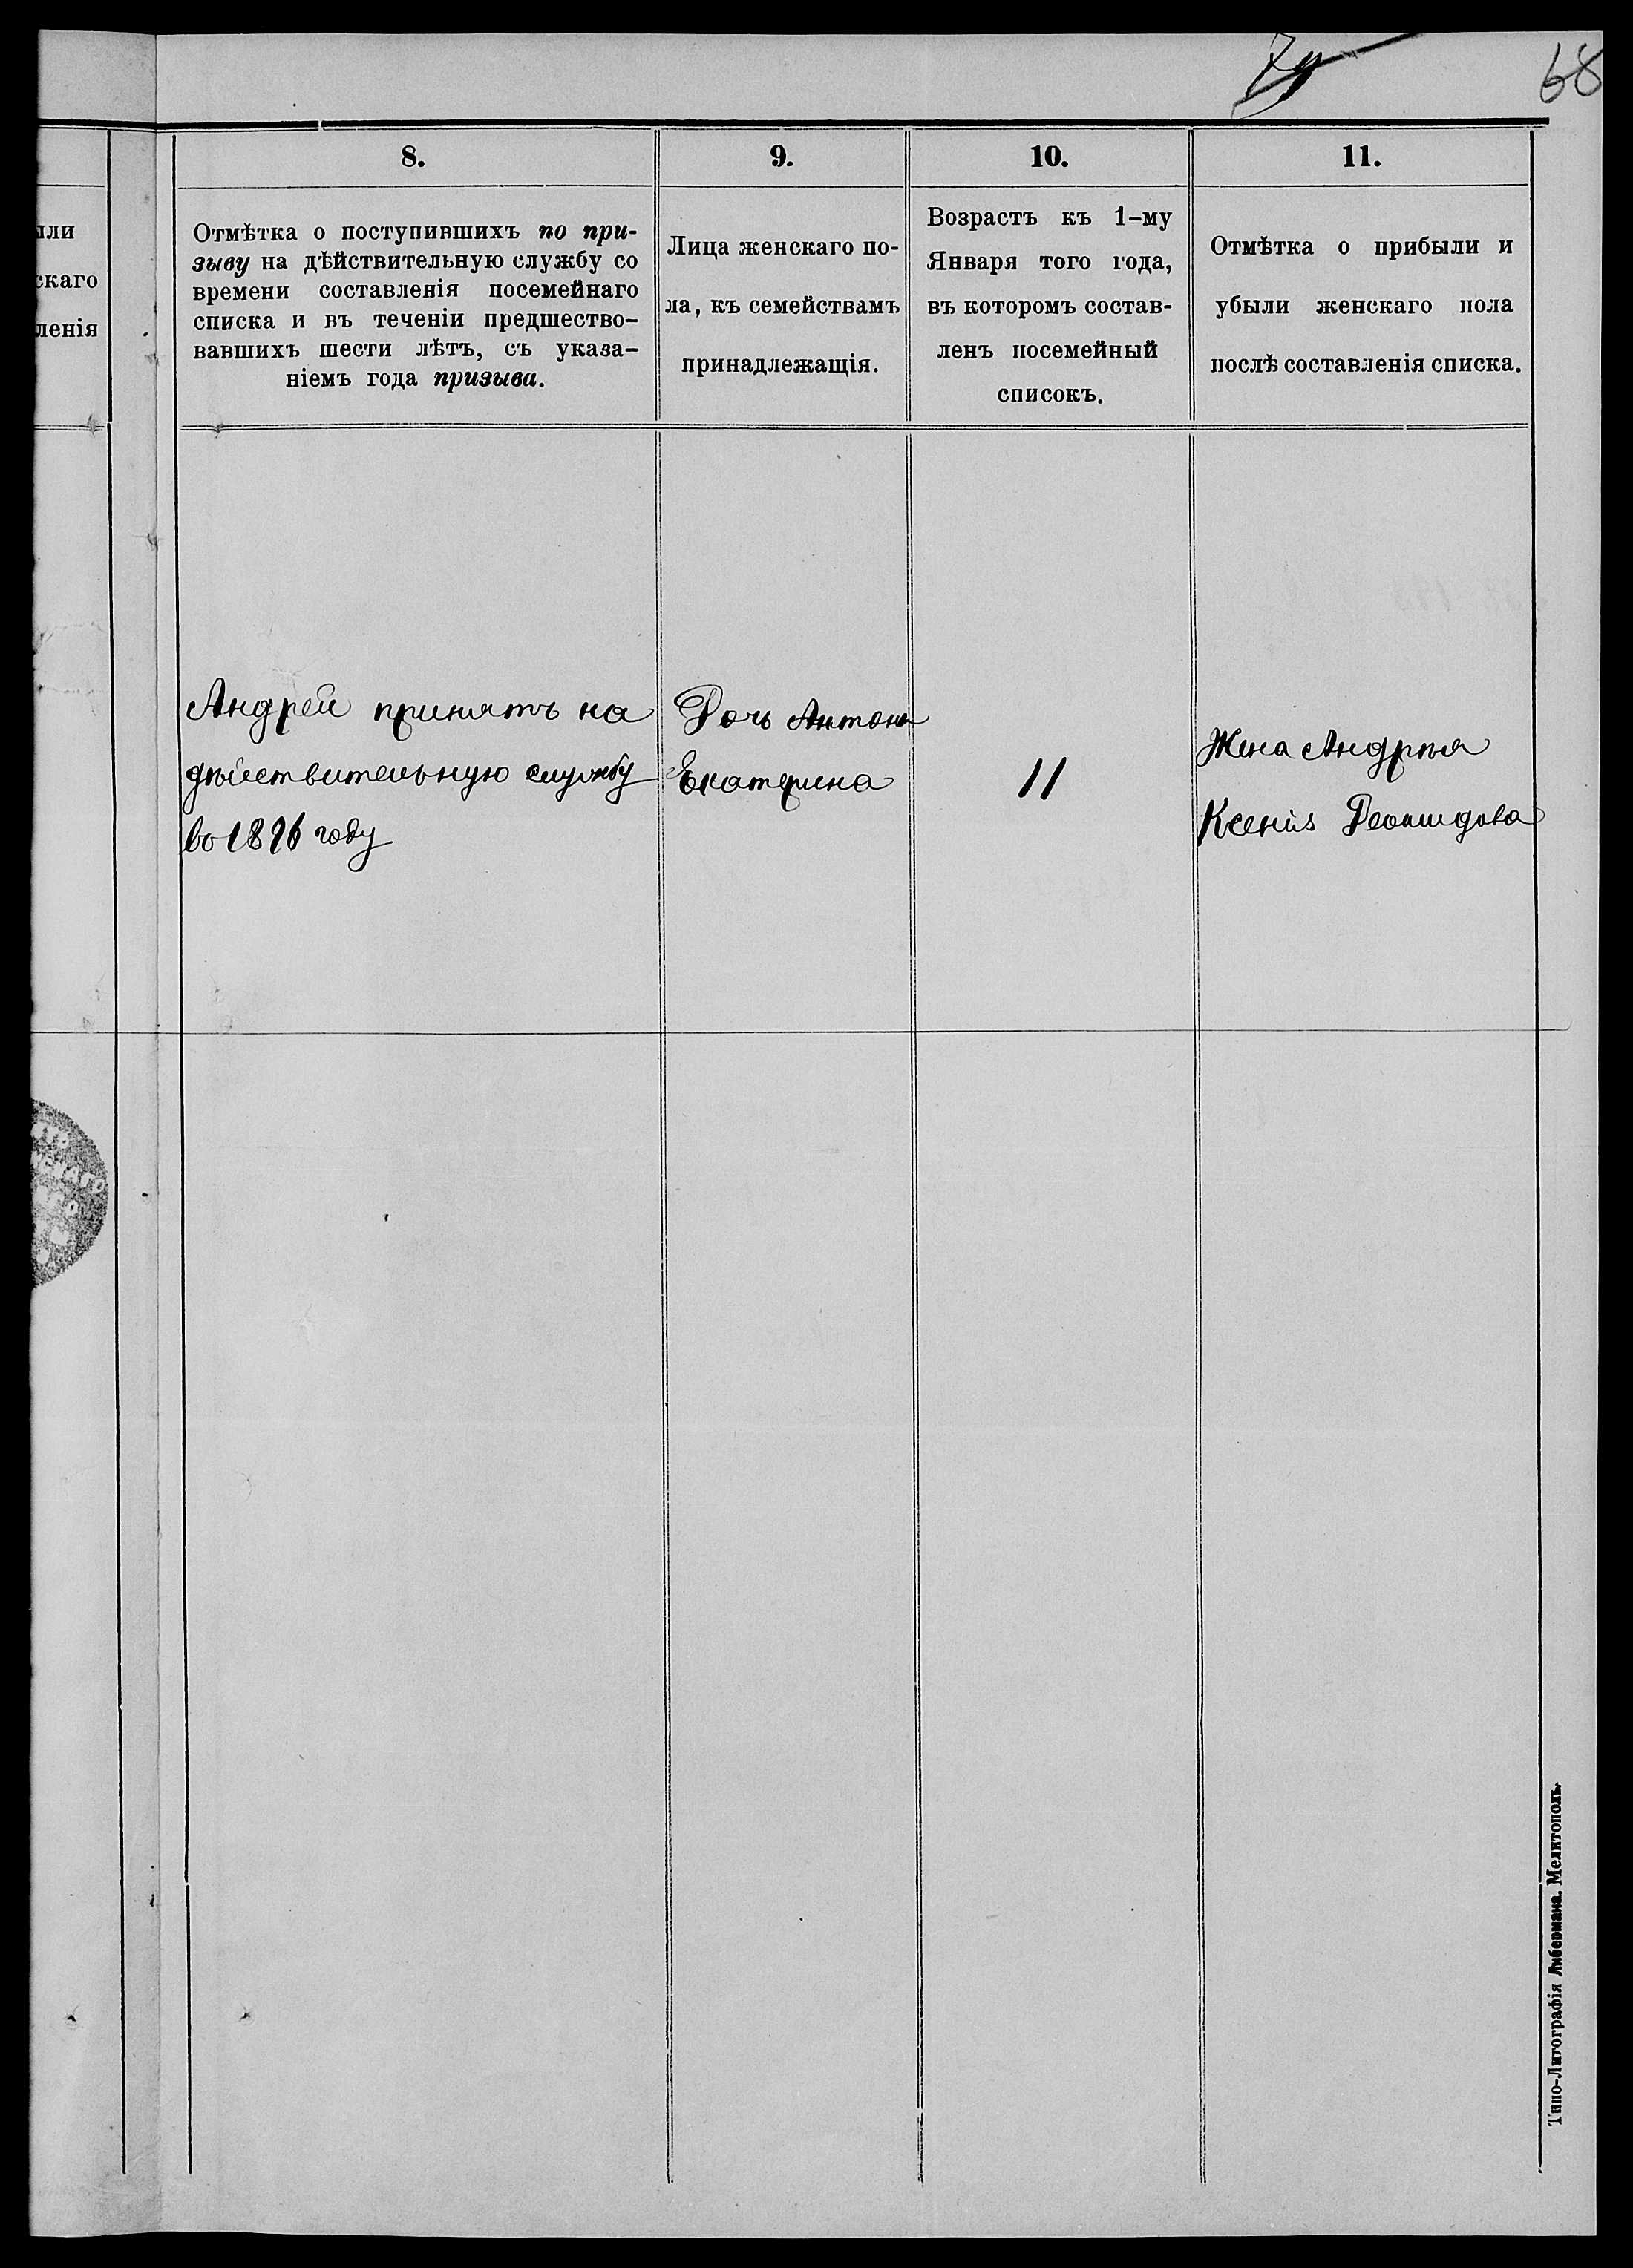 68
8.
9.
10.
11.
Отмѣтка о поступившихъ по при-
зыву на дѣйствительную службу со
времени составленія посемейнаго
списка и въ теченіи предшество-
вавшихъ шести лѣтъ, съ указа-
ніемъ года призыва.
Лица женскаго по-
ла, къ семействамъ
принадлежащія.
Возрастъ къ 1-му
Января того года,
въ которомъ состав-
ленъ посемейный
списокъ.
Отмѣтка о прибыли и
убыли женскаго пола
послѣ составленія списка.
Андрей принятъ на
дѣйствительную службу
въ 1896 году
Дочь Антона
Екатерина
11
Жена Андрѣя
Ксенія
Типо-Литографія Либермана. Мелитополь.